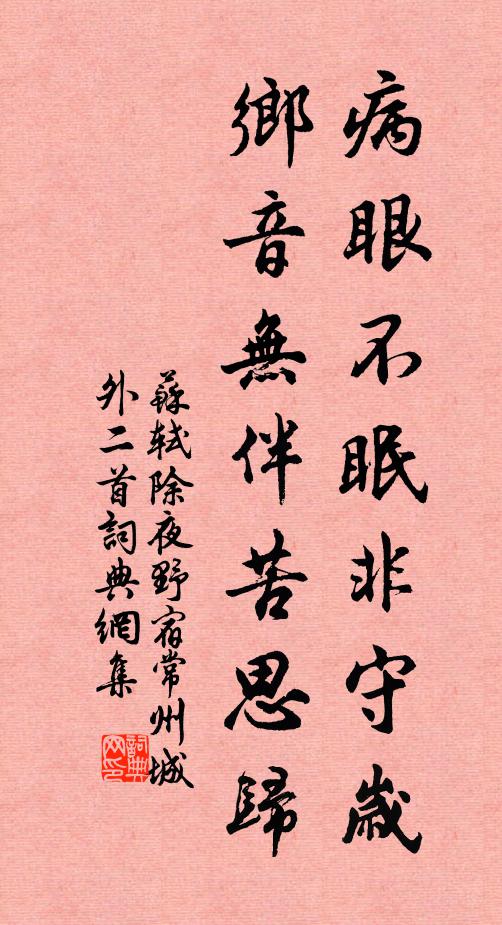 病眼不眠非守歲
鄉音無伴苦思歸
蘇軾除夜野宿常州城
外二首詞典網集
詞典
网印